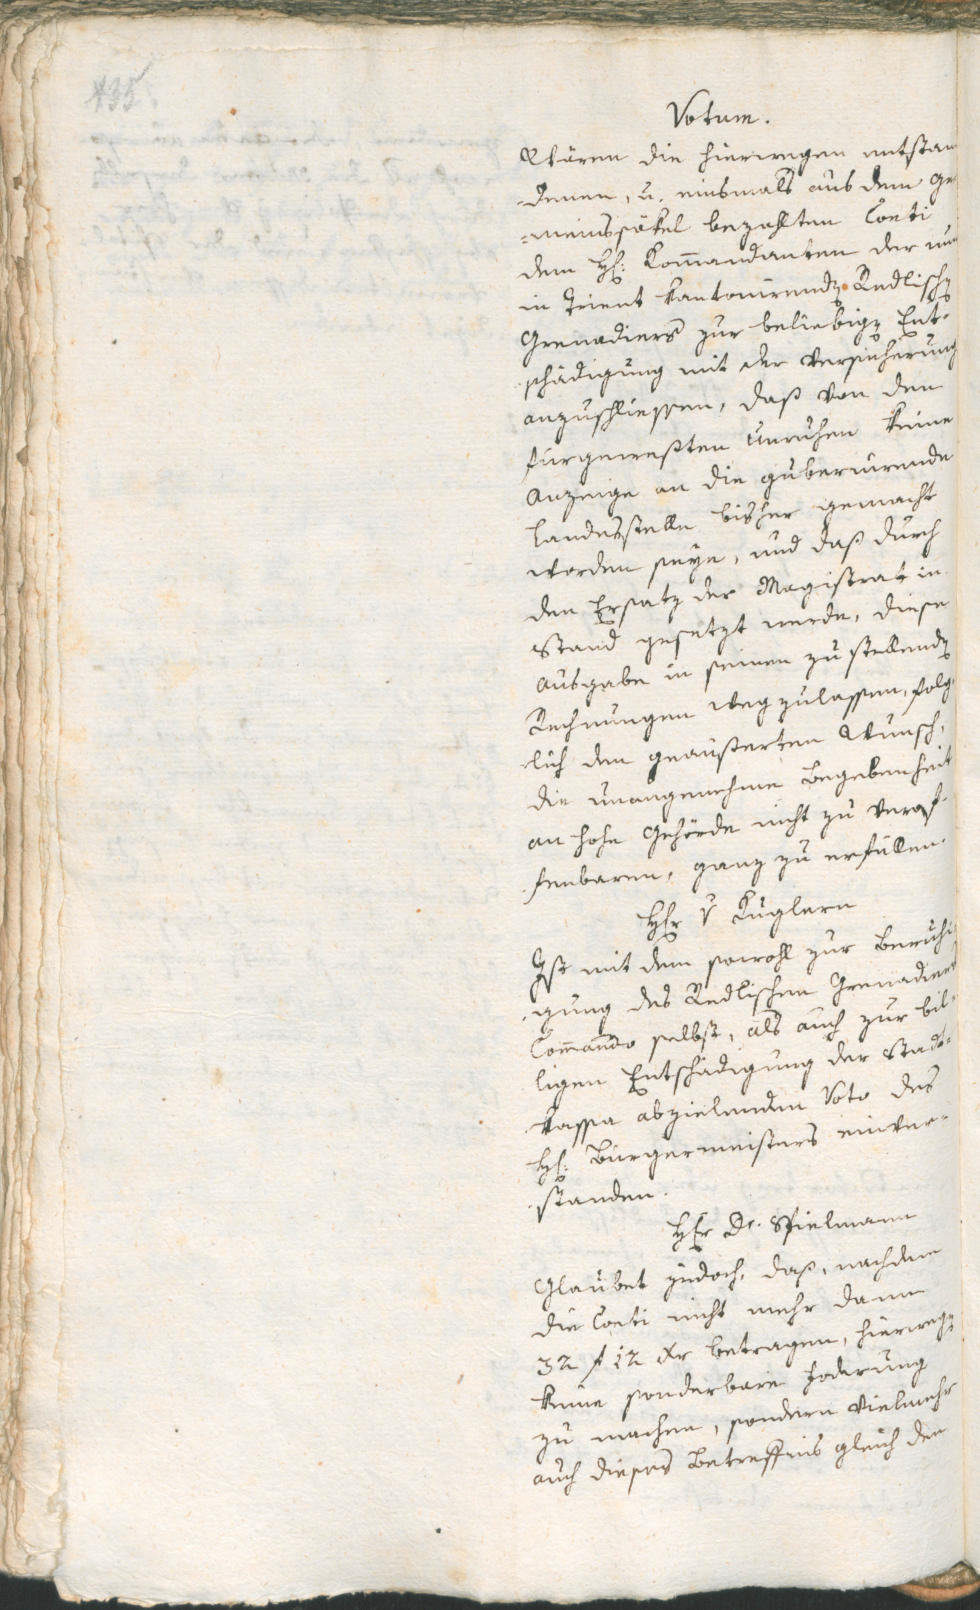 Votum.
Wären die hierwegen entstan
denen, u. einsmals aus dem Ge-
=meinssäkel bezahlten Conti
dem H: Kom̄andanten der nun
in Trient kantonirendn Redlischn
Grenadiers zur beliebign Ent-
schädigung mit der Versicherung
anzuschliessen, daß von den
fürgewesten Unruhen keine
Anzeige an die gubernirende
Landesstelle bisher gemacht
worden seye, und daß durch
den Ersatz der Magistrat in
Stand gesetzt werde, diese
Ausgabe in seinen zu stellendn
Rechnungen wegzulassen, folg-
lich den geäusserten Wunsch,
die unangenehme Begebenheit
an hohe Gehörde nicht zu verof-
fenbaren, ganz zu erfüllen.
Hr v Kuglern
Ist mit dem sowohl zur Beruhi-
gung des Redlischen Grenadier
Com̄ando selbst, als auch zur bil-
ligen Entschädigung der Stadt-
kassa abzielenden Voto des
H: Burgermeisters einver-
standen.
Hr Dr. Spielmann
Glaubet jedoch, daß, nachdem
die Conti nicht mehr dann
32 f 12 xr betragen, hierwegn
keine sonderbare Foderung
zu machen, sondern vielmehr
auch dieses Betreffnis gleich den